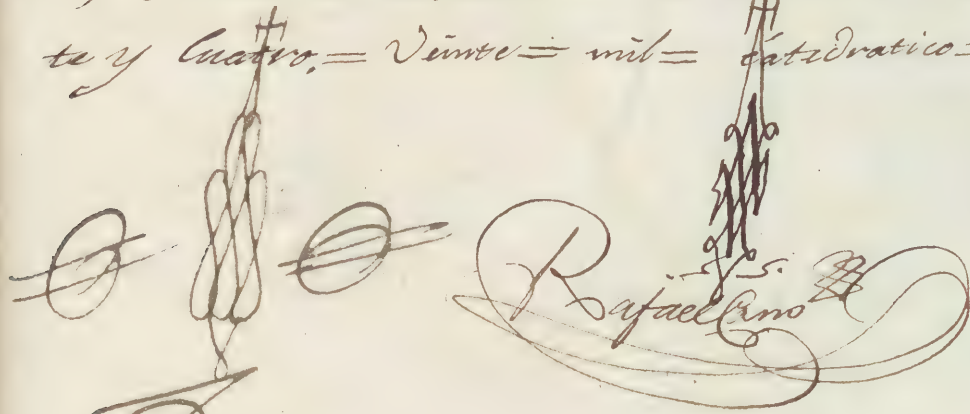 te y Cuatro,= Veinte= mil= catedratico=
Rafael